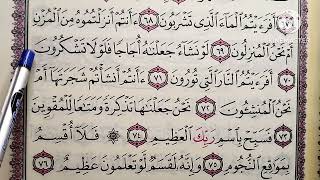 أَفَرَءَيْتُمُ ٱلْمَآءَ ٱلَّذِى تَشْرَبُونَ ٦٨ ءَأَنتُمْ أَنزَلْتُمُوهُ مِنَ ٱلْمُزْنِ
أَمْ نَحْنُ ٱلْمُنزِلُونَ ٦٩ لَوْ نَشَآءُ جَعَلْنَٰهُ أُجَاجًا فَلَوْلَا تَشْكُرُونَ
٧٠ أَفَرَءَيْتُمُ ٱلنَّارَ ٱلَّتِى تُورُونَ ٧١ ءَأَنتُمْ أَنشَأْتُمْ شَجَرَتَهَآ أَمْ
نَحْنُ ٱلْمُنشِـُٔونَ ٧٢ نَحْنُ جَعَلْنَٰهَا تَذْكِرَةً وَمَتَٰعًا لِّلْمُقْوِينَ
٧٣ فَسَبِّحْ بِٱسْمِ رَبِّكَ ٱلْعَظِيمِ ٧٤ فَلَآ أُقْسِمُ
بِمَوَٰقِعِ ٱلنُّجُومِ ٧٥ وَإِنَّهُۥ لَقَسَمٌ لَّوْ تَعْلَمُونَ عَظِيمٌ ٧٦